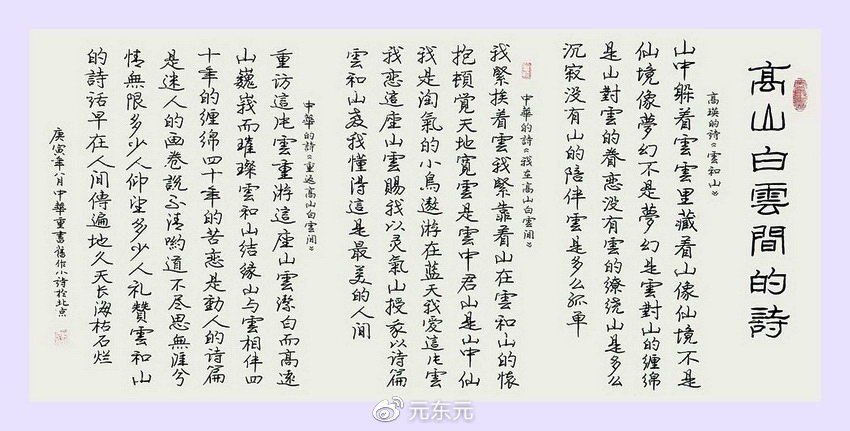 髙山白雲間的詩
高瑛的詩《雲和山》
山中躲着雲雲里藏着山像仙境不是
仙境像夢幻不是夢幻是雲對山的纏綿
是山對雲的眷恋没有雲的缭绕山是多么
沉寂没有山的陪伴雲是多么孤単
中華的詩《我在高山白雲間》
我緊挨着雲我緊靠着山在雲和山的懐
抱頓覺天地寬雲是雲中君山是山中仙
我是淘氣的小鳥遨游在蓝天我爱這片雲
我恋這座山雲賜我以灵氣山授我以诗篇
雲和山教我懂得這是最美的人间
中華的詩《重返高山白雲間》
重访這片雲重游這座山雲潔白而高遠
山巍峩而璀璨雲和山結缘山与雲相伴四
十年的缠绵四十年的苦恋是動人的诗篇
是迷人的画卷説不清喲道不尽思無涯兮
情無限多少人仰望多少人礼赞雲和山
的詩话早在人间傳遍地久天长海枯石烂
庚寅年八月中華重書舊作小诗於北京
元东元